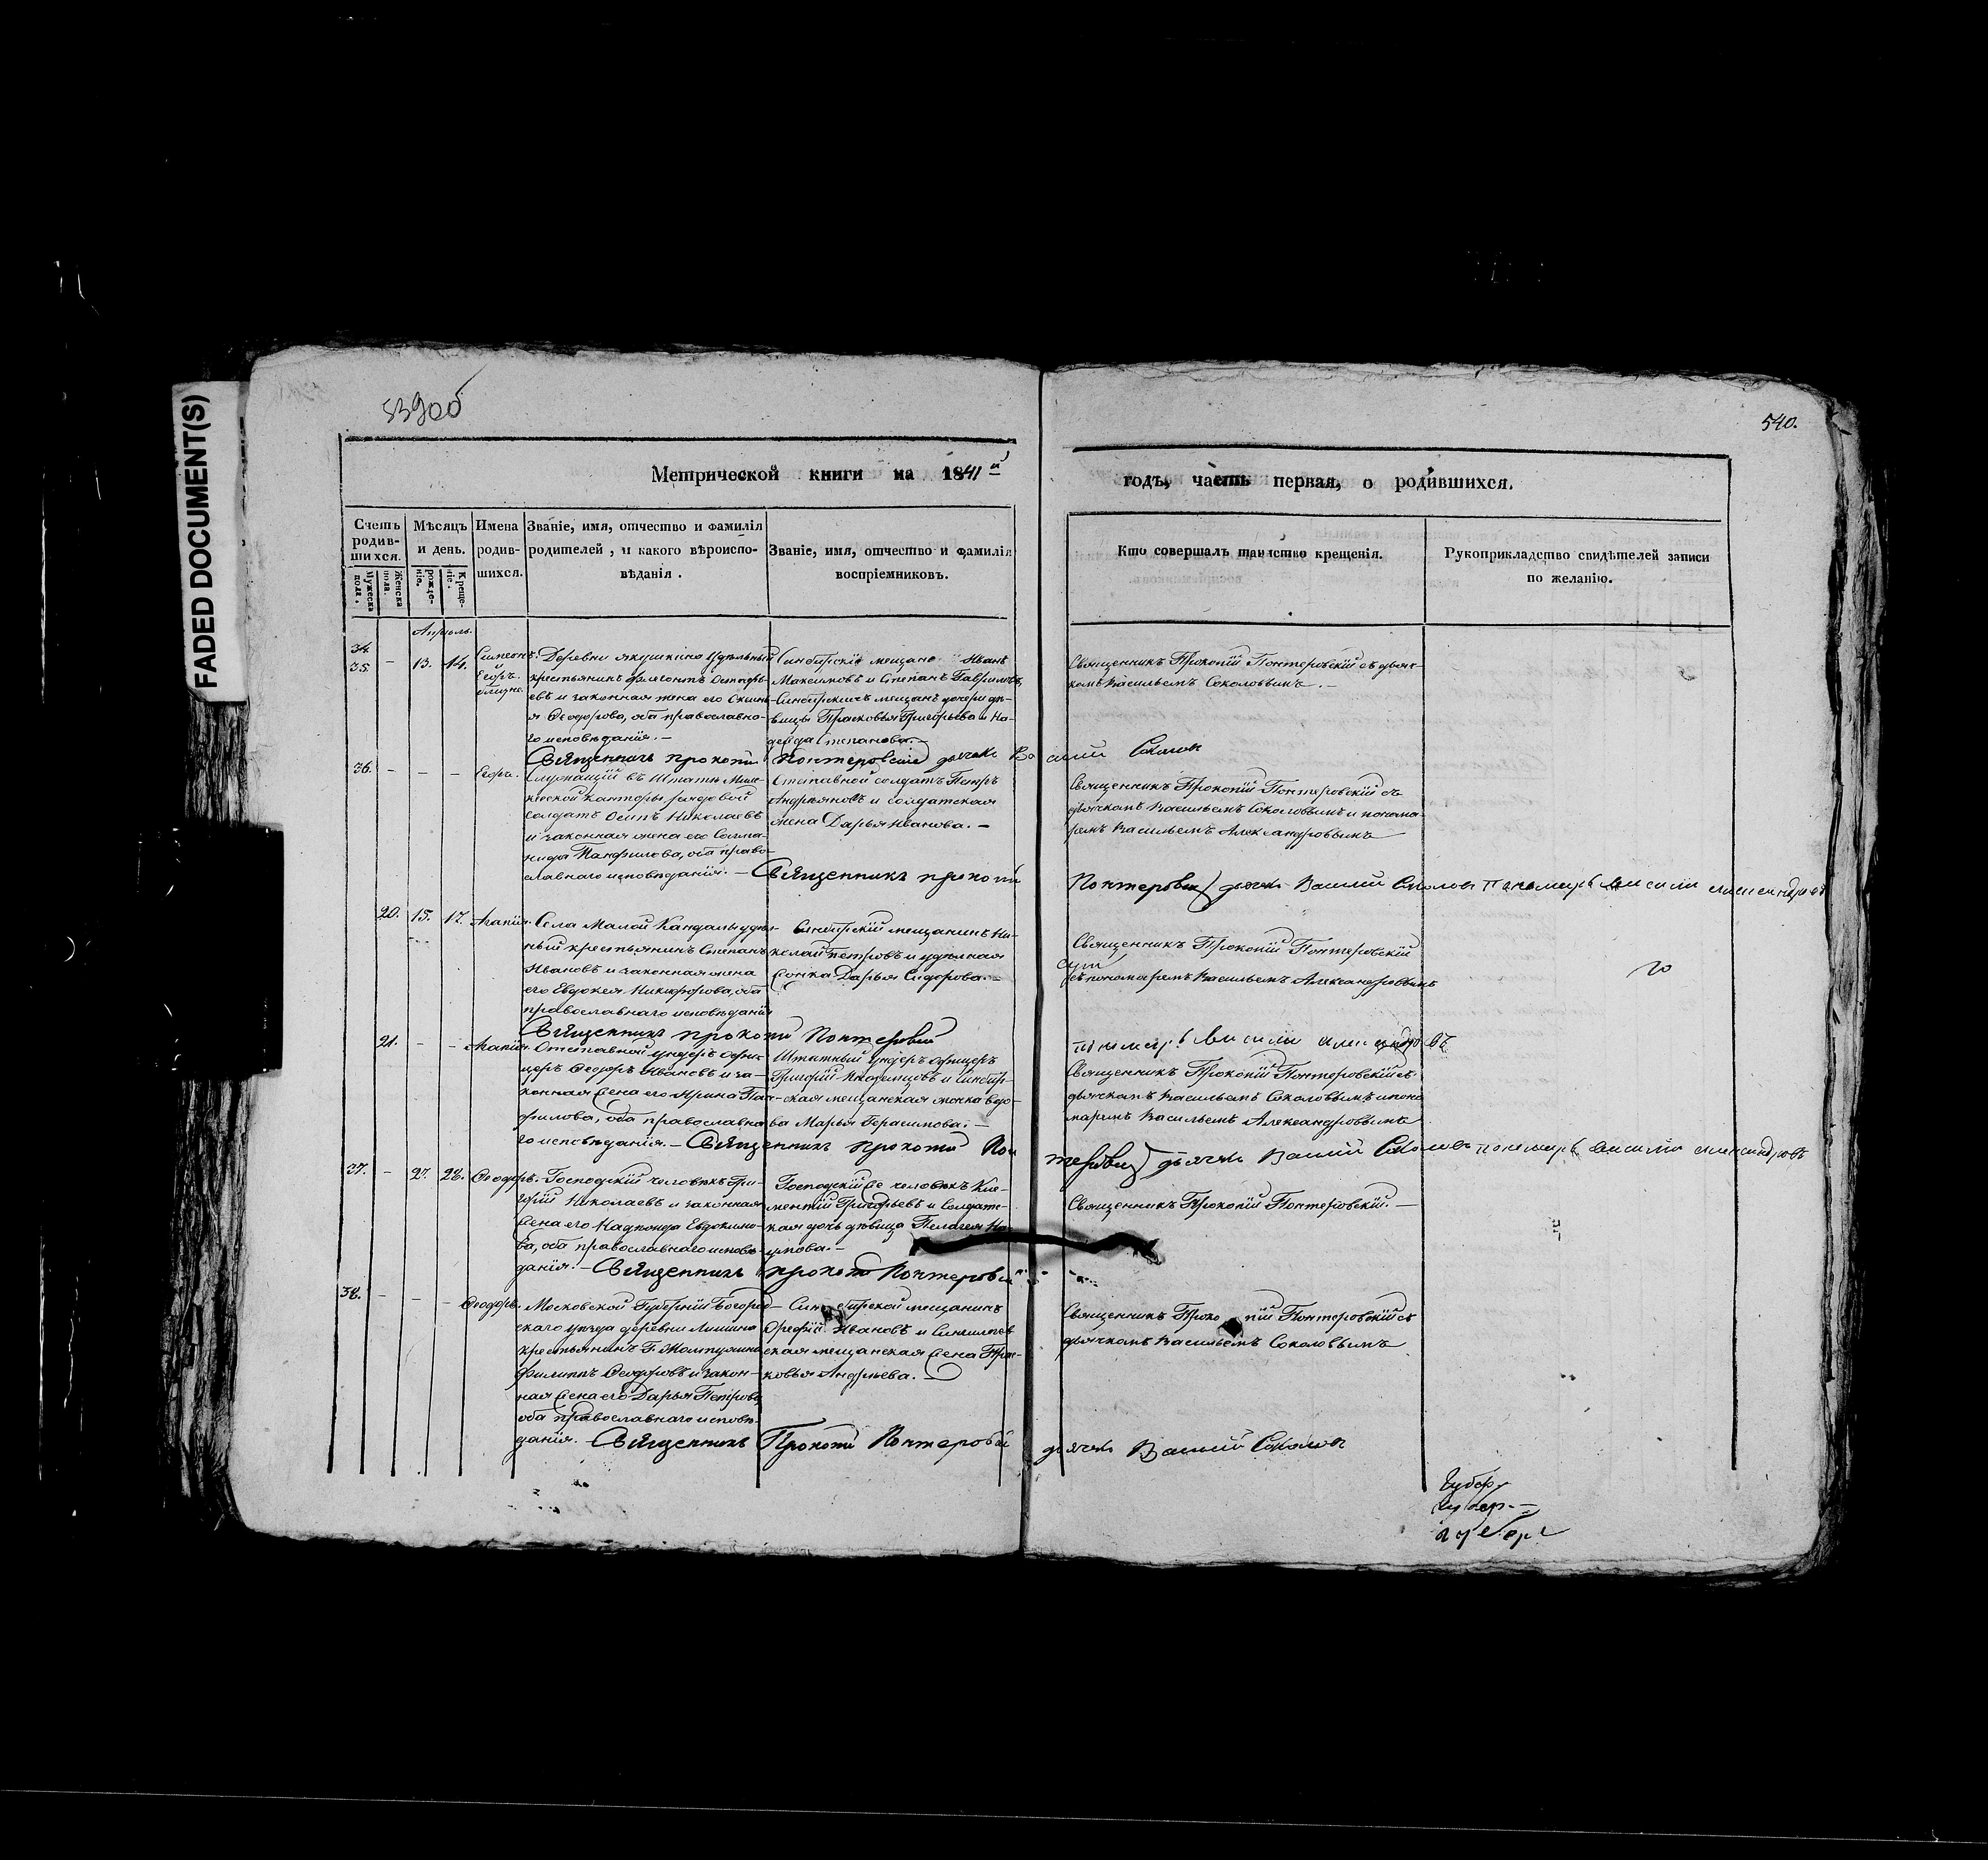 FADED DOCUMENT(S)
539об
540.
Метрической книги на 1841й
годъ, часть первая, о родившихся.
Счетъ родившихся.
Мужеска пола.
Женска пола.
Мѣсяцъ и день.
рожденіе.
Крещеніе.
Имена родившихся.
Званіе, имя, отчество и фамилія
родителей, и какого вѣроиспо-
вѣданія.
Званіе, имя, отчество и фамилія
воспріемниковъ.
Кто совершалъ таинство крещенія.
Рукоприкладство свидѣтелей записи
по желанію.
Апрѣль.
34. 35. – 13. 14.
Симеонъ и Егоръ. близне.
Деревни Якушкина удѣльный
крестьянинъ Филимонъ
евъ и законная жена его
я Ѳеодорова, оба православна-
го исповѣданія. –
Синбирскіе мещане Иванъ
Максимовъ и Степанъ Гавриловъ,
Синбирскихъ мещанъ дочери дѣ-
вицы Прасковья Григорьева и На-
дежда Степанова. –
Священникъ Прокопій Понтеровскій съ дьяч-
комъ Васильемъ Соколовымъ. –
Священникъ Прокопій Понтеровскій дьячекъ Василий Соколовъ
36. – – –
Егоръ.
Служащій въ Штатѣ
конторы рядовой
солдатъ Осипъ Николаевъ
и законная жена его Солма-
нида Панфилова, оба право-
славнаго исповѣданія. –
Отставной солдатъ Петръ
Андреяновъ и солдатская
жена Дарья Иванова. –
Священникъ Прокопій Понтеровскій съ
дьячкомъ Васильемъ Соколовымъ и понома-
ремъ Васильемъ Александровымъ
Священникъ Прокопій Понтеровскій дьячекъ Василий Соколовъ пономарь Василий Александровъ
20. 15. 17.
Агапія.
Села Малой Кандалы удѣль-
ный крестьянинъ Степанъ
Ивановъ и законная жена
его Евдокея Никифорова, оба
православнаго исповѣданія
Синбирскій мещанинъ Ни-
колай Петровъ и удѣльная
Дарья Сидорова. –
Священникъ Прокопій Понтеровскій
съ пономаремъ Васильемъ Александровымъ
Священникъ Прокопій Понтеровскій
пономарь Василий Александровъ
21. – –
Агапія.
Отставной ундеръ офи-
церъ Ѳедоръ Ивановъ и за-
конная жена его Ирина Пан-
филова, оба православна-
го исповѣданія. –
Штатный ундеръ офицеръ
Григорій и Синбир-
ская мещанская женка вдо-
ва Марья Герасимова. –
Священникъ Прокопій Понтеровскій съ
дьячкомъ Васильемъ Соколовымъ и поно
маремъ Васильемъ Александровымъ
Священникъ Прокопій Понтеровскій дьячекъ Василий Соколовъ пономарь Василий Александровъ
37. – 27. 28.
Ѳеодоръ.
Господскій человѣкъ Гри-
горій Николаевъ и законная
жена его Надежда Евдокимо-
ва, оба православнаго исповѣ-
данія. –
Господскій же человѣкъ Кле-
ментій Григорьевъ и солдатс-
кая дочь дѣвица Пелагея На-
умова. –
Священникъ Прокопій Понтеровскій. –
Священникъ Прокопій Понтеровскій
38. – – –
Ѳеодоръ.
Московской Губерніи Богород-
скаго уѣзда деревни
крестьянинъ Г.
Филиппъ Ѳеодоровъ и закон-
ная жена его Дарья Петрова,
оба православнаго исповѣ-
данія.
Синбирской мещанинъ
Орефій Ивановъ и Синбирс-
кая мещанская жена Прас-
ковья Андреева. –
Священникъ Прокопій Понтеровскій съ
дьячкомъ Васильемъ Соколовымъ
Священникъ Прокопій Понтеровскій дьячекъ Василий Соколовъ
Губер